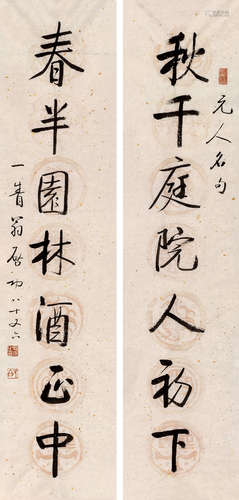 元人名句
秋千庭院人初下
春半園林酒正中
一眚翁啓功八十又六